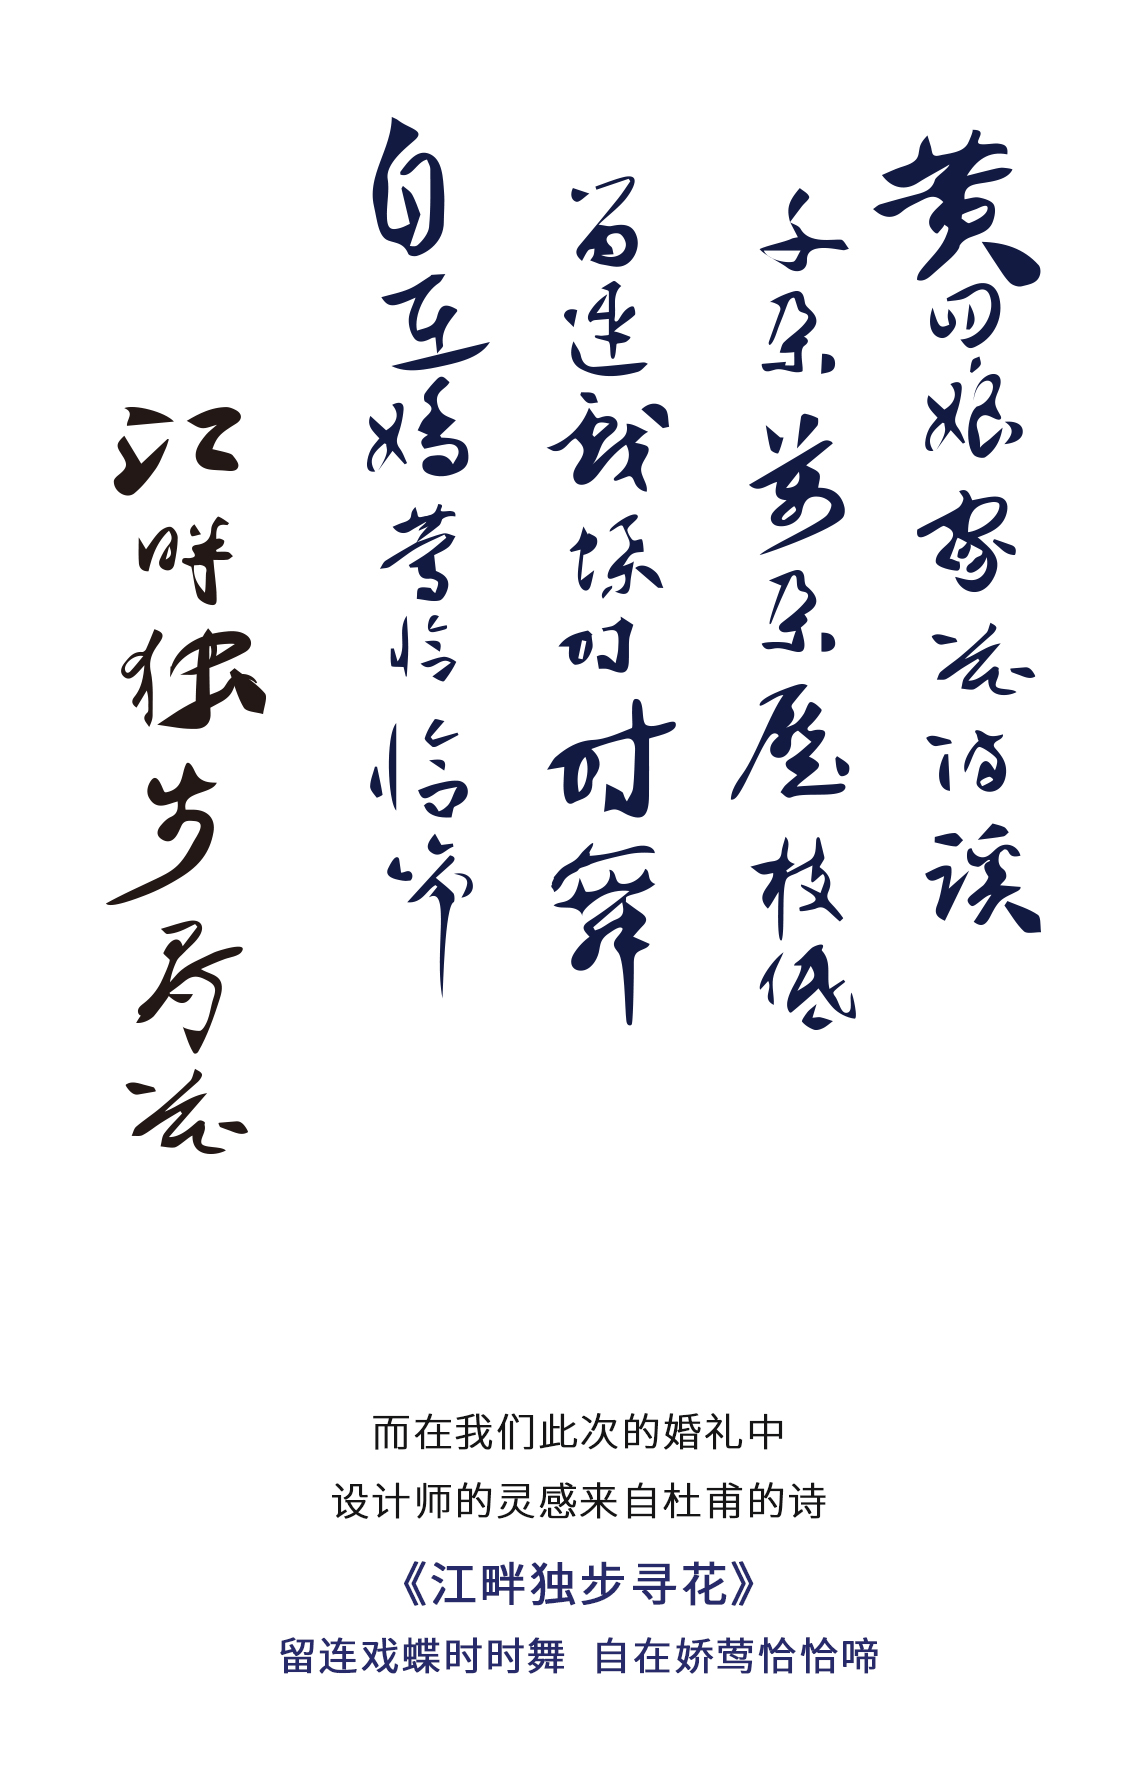 黄四娘家花满蹊
千朵万朵压枝低
留连戏蝶时时舞
自在娇莺恰恰啼
江畔独步寻花
而在我们此次的婚礼中
设计师的灵感来自杜甫的诗
《江畔独步寻花》
留连戏蝶时时舞 自在娇莺恰恰啼